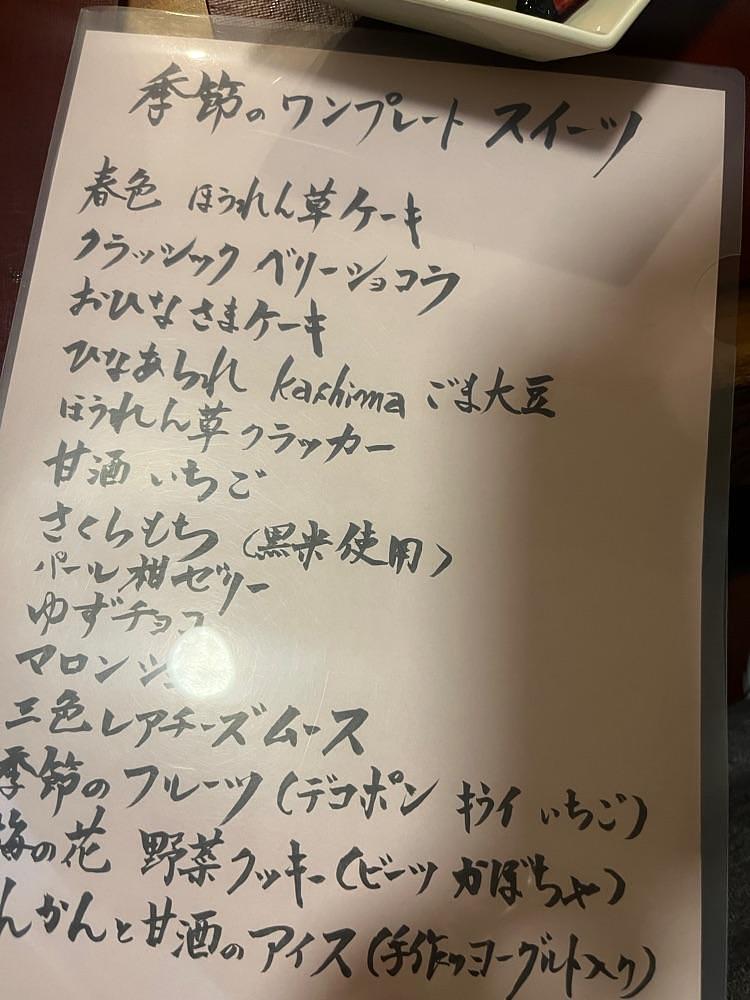 季節のワンプレート スイーツ
春色 ほうれん草ケーキ
クラッシック ベリーショコラ
おひなさまケーキ
ひなあられ kashima ごま大豆
ほうれん草クラッカー
甘酒 いちご
さくらもち (黒米使用)
パール柑ゼリー
ゆずチョコ
マロン
三色レアチーズムース
季節のフルーツ (デコポン キウイ いちご)
梅の花 野菜クッキー (ビーツ かぼちゃ)
んかんと甘酒のアイス (手作りヨーグルト入り)